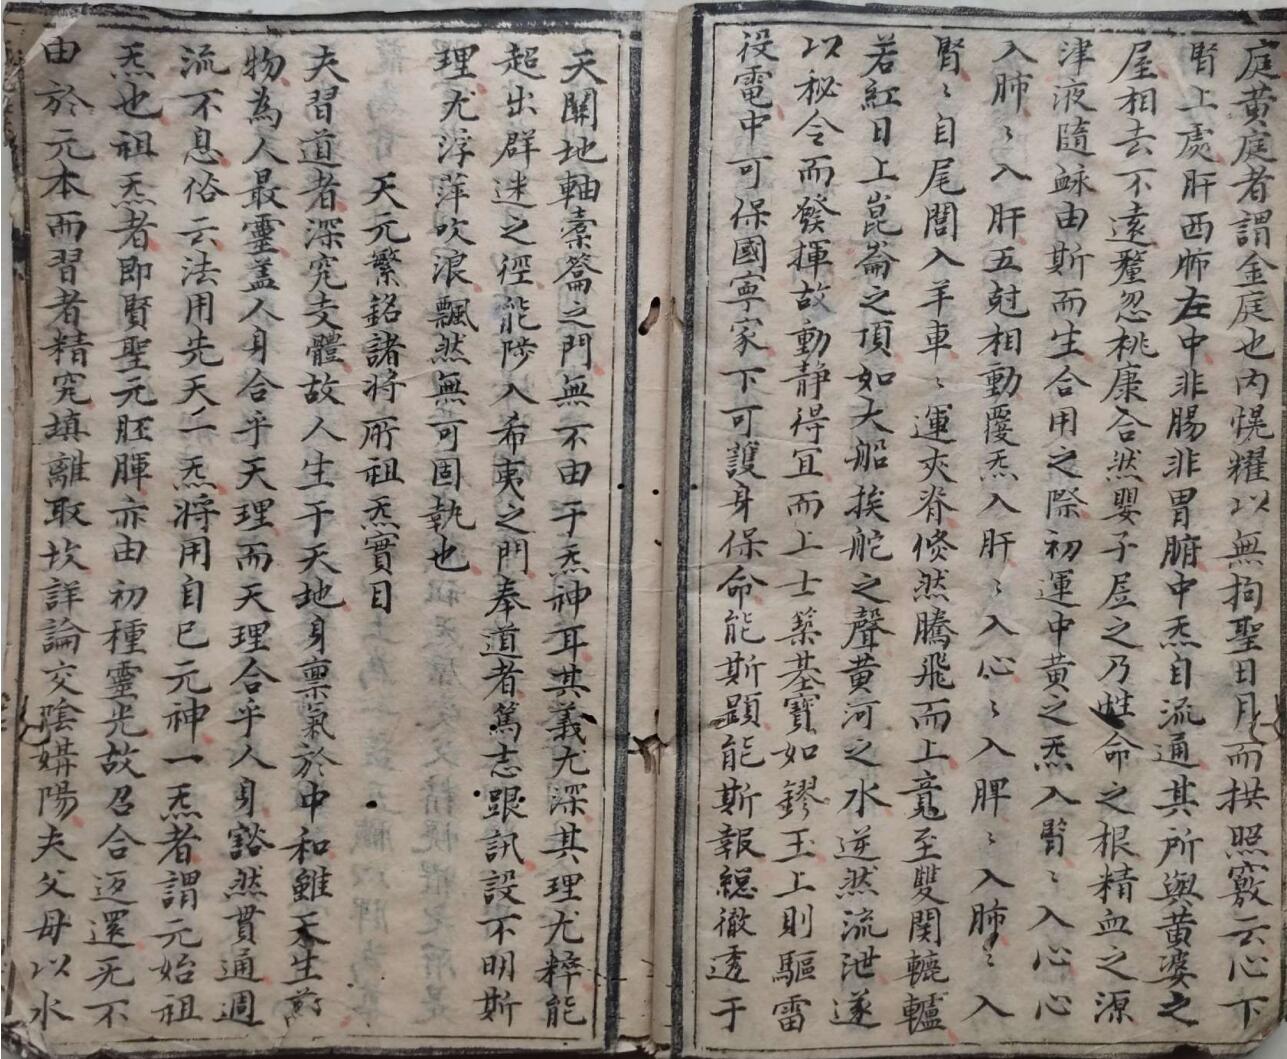 庭黄庭者謂金庭也内愰耀以無拘聖日月而拱照竅云心下
腎上處肝西肺左中非腸非胃腑中炁自流通其所與黄婆之
屋相去不遠釐忽桃康合然嬰子居之乃性命之根精血之源
津液隨穌由斯而生合用之際初運中黄之炁入腎〻入心心
入肺〻入肝五尅相動覆炁入肝〻入心〻入脾〻入肺〻入
腎〻自尾閭入羊車〻運夾脊倏然騰飛而上竟至雙関轆轤
若紅日上崑崙之頂如大船挨舵之聲黄河之水逆然流泄遂
以秘令而發揮故動静得宜而上士築基寶如鏐玉上則驅雷
役電中可保國寧家下可護身保命能斯顕能斯報総徹透于
天關地軸橐籥之門無不由于炁神耳其義尤深其理尤粹能
超出群迷之徑能陟入希夷之門奉道者篤志跟訊設不明斯
理尤浮萍吹浪飄然無可固執也
天元繁銘諸将所祖炁實目
夫習道者深究玄體故人生于天地身禀氣於中和雖天生萬
物為人最靈盖人身合乎天理而天理合乎人身豁然貫通週
流不息俗云法用先天一炁将用自己元神一炁者謂元始祖
炁也祖炁者即賢聖元胚暉亦由初種靈光故召合迈還死不
由於元本而習者精究填離取坎詳論交陰媾陽夫父母以水